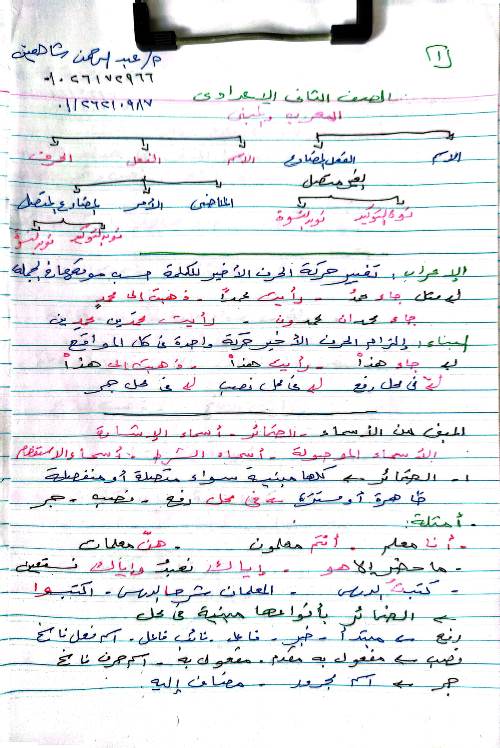 م/ عبد الرحمن شاهين
٠١٠٢٦١٧٢٩٦٦
٠١١٢٦٢١٠٩٨٧
١
الصف الثاني الإعدادي
المعرب والمبنى
الاسم الفعل المضارع الاسم الفعل الحرف
الغير متصل
نون التوكيد نون النسوة الماضى الأمر المضارع المتصل
نون التوكيد نون النسوة
الإعراب: تغيير حركة الحرف الأخير للكلمة حسب موقعها في الجملة
مثل جاء محمدٌ - رأيت محمداً - ذهبت إلى محمدٍ
جاء محمدان محمدون - رأيت محمدين محمدين
البناء: إلزام الحرف الأخير حركة واحدة في كل المواقع
جاء هذا - رأيت هذا - ذهبت إلى هذا
في محل رفع في محل نصب في محل جر
المبني من الأسماء - الضمائر - أسماء الإشارة
الأسماء الموصولة - أسماء الشرط - أسماء الاستفهام
١- الضمائر ← كلها مبنية سواء متصلة أو منفصلة
ظاهرة أو مستترة ← في محل رفع - نصب - جر
- أمثلة:
- أنا معلم - أنتم معلمون - هنّ معلمات
- ما حضر إلا هو - إياك نعبد وإياك نستعين
- كتبتُ الدرس - المعلمان شرحا الدرس - اكتبوا
← الضمائر بأنواعها مبنية في محل
رفع ← مبتدأ - خبر - فاعل - نائب فاعل - اسم فعل ناسخ
نصب ← مفعول به مقدم - مفعول به - اسم حرف ناسخ
جر ← اسم مجرور - مضاف إليه